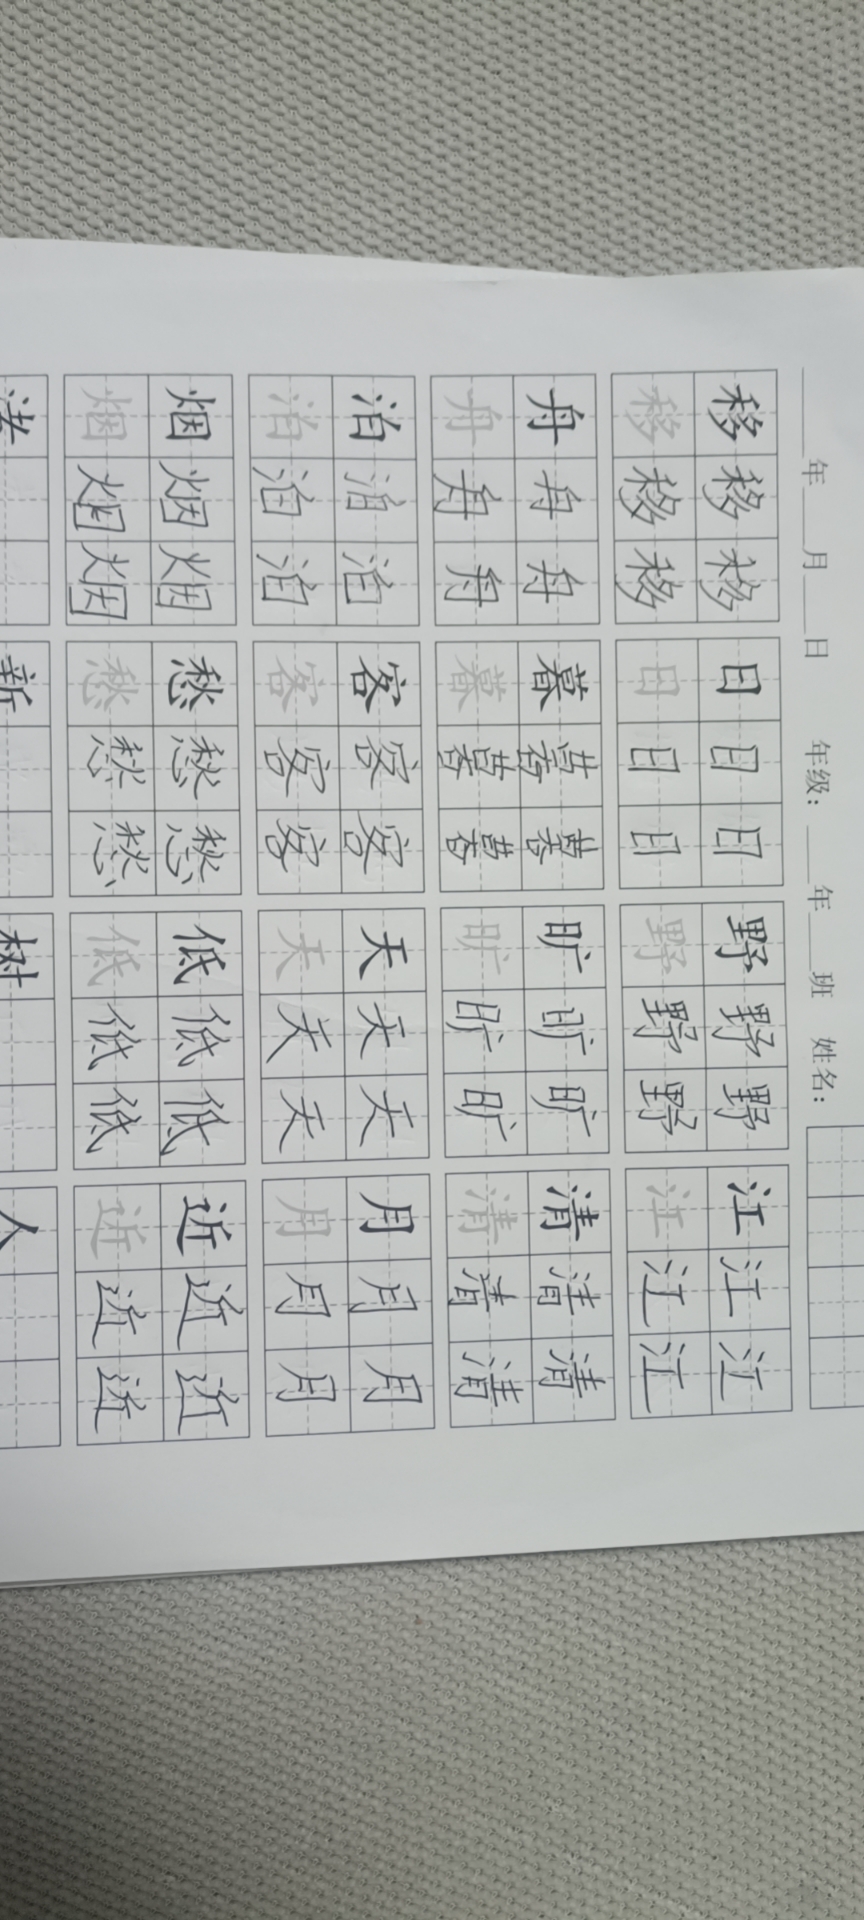 年 月 日 年级: 年 班 姓名:
移移移 日日日 野野野 江江江
移移移 日日日 野野野 江江江
舟舟舟 暮暮暮 旷旷旷 清清清
舟舟舟 暮暮暮 旷旷旷 清清清
泊泊泊 客客客 天天天 月月月
泊泊泊 客客客 天天天 月月月
烟烟烟 愁愁愁 低低低 近近近
烟烟烟 愁愁愁 低低低 近近近
渚 新 树 人